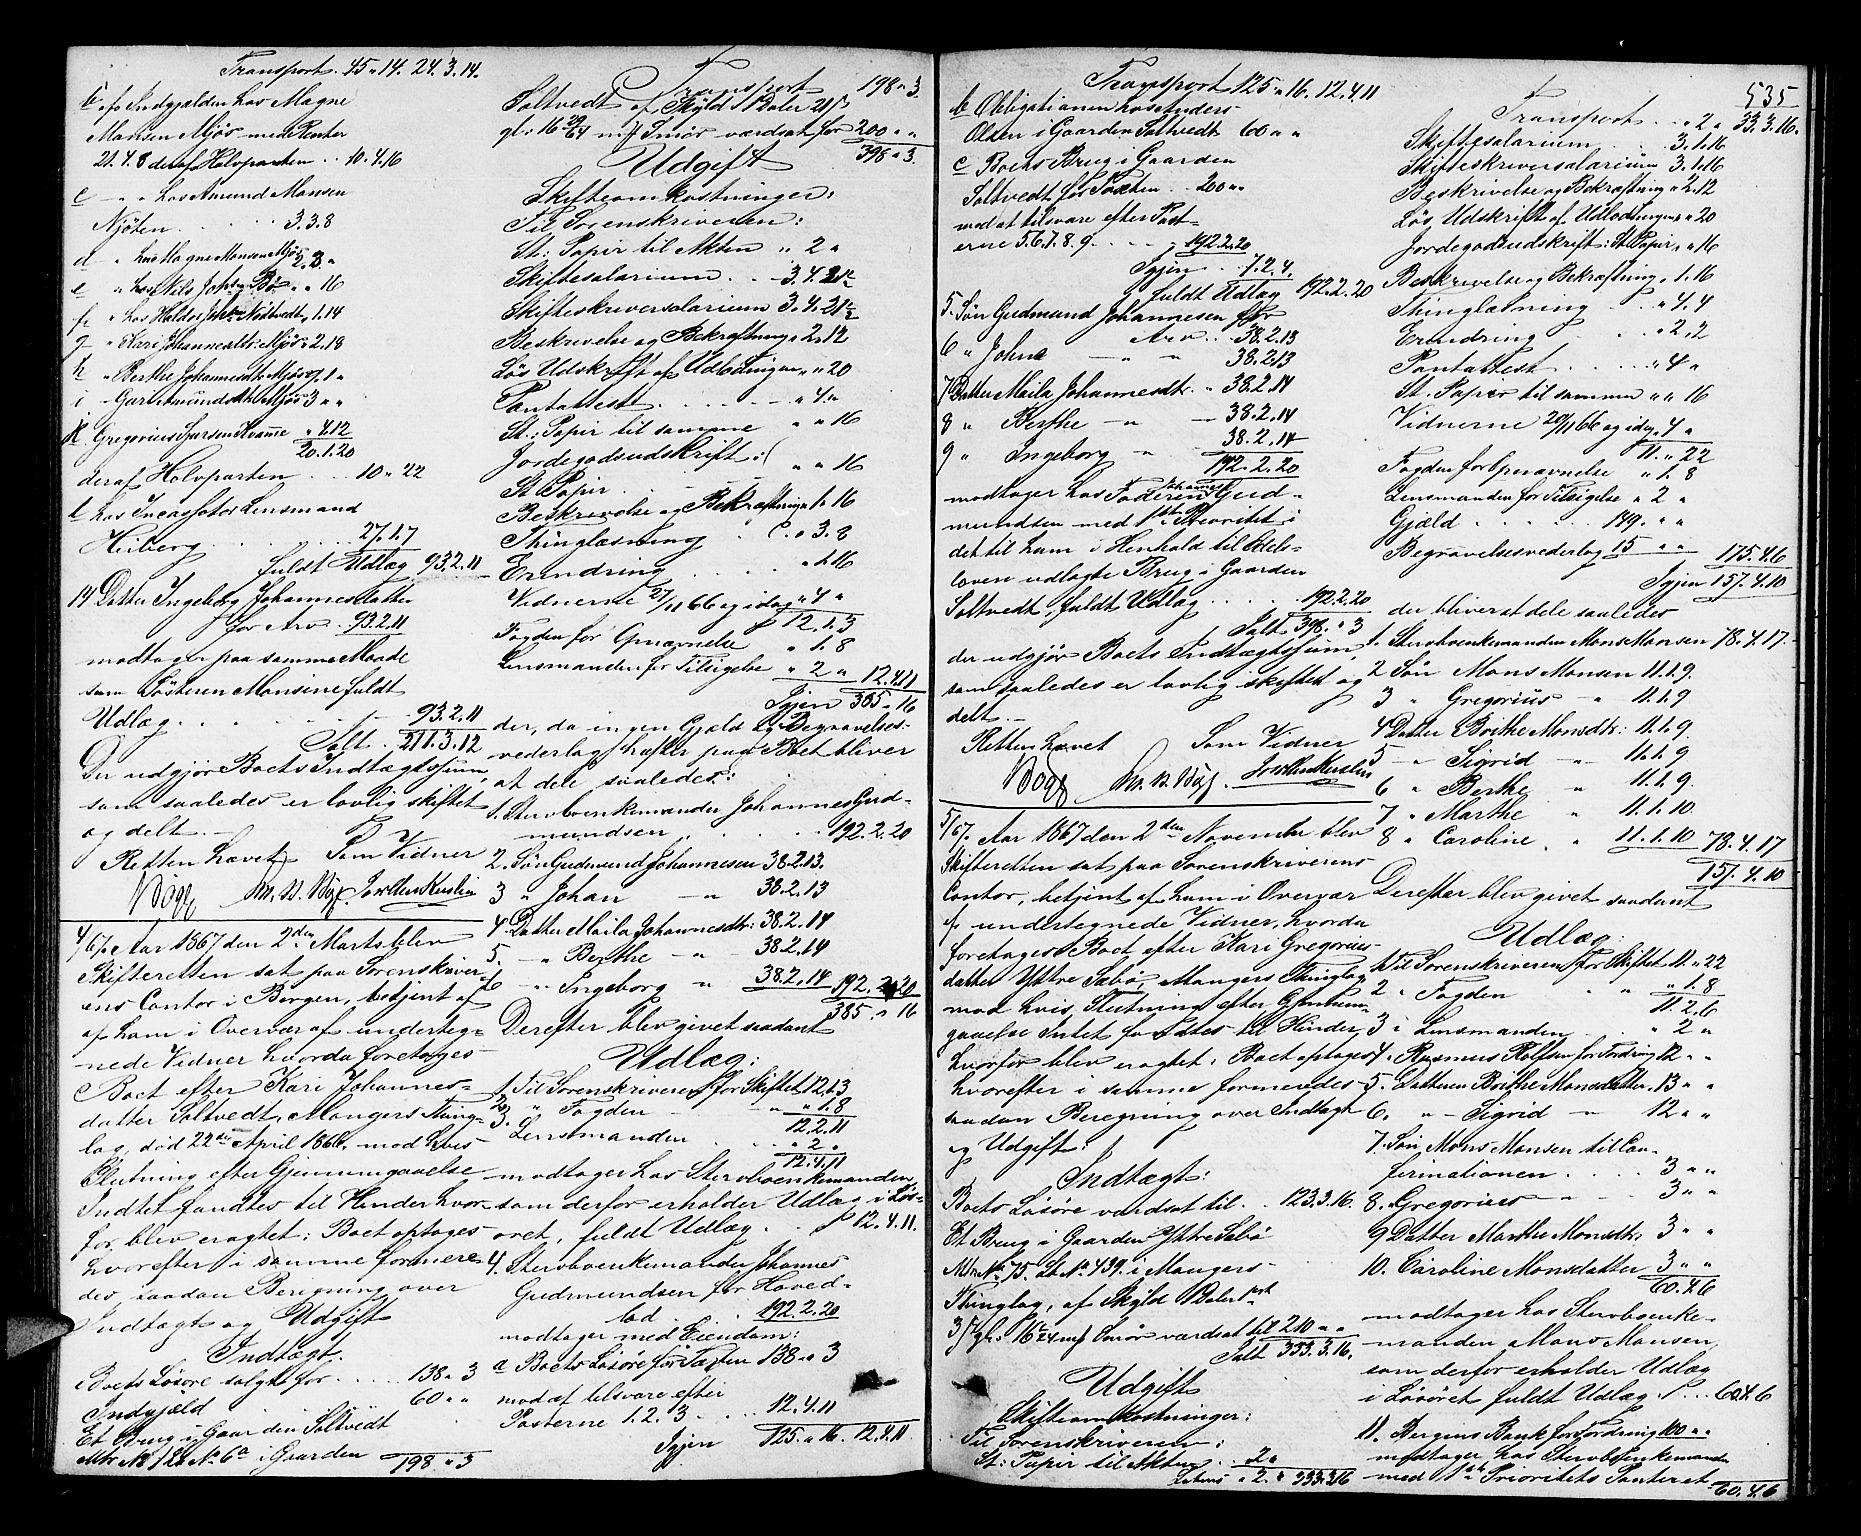 Transport. 45 " 14. 24. 3. 14.
b. af Indgjælden hos Magne
Mansen Mjøs med Renter
21. 4. 8 deraf Halvparten .. 10. 4. 16
c — " " hos Amund Mansen
Njøten . . . . . 3. 3. 8
d " hos Magne Mansen Mjøs 2. 3. "
e " hos Nils Johs: Bø " " 16
f " hos Haldor Johs: Njøtvedt " 1. 14
g " Kari Johannesdtr: Mjøs 2. 18
h " Berthe Johannesdtr Mjøs
i — Mjøs 3 " "
k Gregorius Kvamme " 4. 12
20. 1. 20
deraf Halvparten ... 10 " 22
l hos Incassator Lensmand
Heiberg . . . . . . 27. 1. 7
fuldt Udlæg 93. 2. 11
14 Datter Ingeborg Johannesdatter
for Arv . 93. 2. 11
modtager paa samme Maade
som Søsteren Mansine fuldt
Udlæg . . . . . 93. 2. 11
Salt . 211. 3. 12
Der udgjør Boets Indtægtssum,
som saaledes er lovlig skiftet
og delt. —
Retten hævet Som Vidner
4/67. Aar 1867 den 2den Marts blev
Skifteretten sat paa Sorenskriver-
ens Contor i Bergen, betjent af
af ham i Overvær af underteg-
nede Vidner hvorda foretoges
Boet efter Kari Johannes-
datter Saltvedt, Mangers Thing-
lag, død 22de April 1866, mod hvis
Slutning efter Gjennemgaaelse
Indtet fandtes til Hinder hvor-
for blev eragtet: Boet optages
hvorefter i samme formere-
des saadan Beregning over
Indtægt og Udgift
Indtægt.
Boets Løsøre solgt for ..... 138 " 3
Indgjæld 60 " "
Et Brug i Gaarden Saltvedt
Mtr No 12 No 6a i Gaarden
198 " 3
Transport 198 " 3.
Saltvedt af Skyld 1 Daler 2 1 ß
gl: 16 29/64 mk Smør værdsat for 200 " "
398 " 3.
Udgift
Skifteomkostninger:
Til Sorenskriveren:
St: Papir til Akten " 2 "
Skiftesalarium . . . 3. 4. 21½
Skifteskriversalarium 3. 4. 21½
Beskrivelse og Bekræftning " 2. 12
Løs Udskrift af Udlodningen " " 20
Pantattest . . . . . . " 4. "
St: Papir til samme " " 16
Jordegodsudskrift:
St Papir . . . . . " " 16
Beskrivelse og Bekræftning " 1. 16
Thinglæsning . . " 3. 8
Erindring . . . . . " 1. 16
Vidnerne 27/11 66 og idag " 4 "
12. 1. 3
Fogden for Opnævnelse " 1. 8
Lensmanden for Tilsigelse " 2 " 12. 4. 11
Igjen 385 " 16
der, da ingen Gjæld og Begravelses-
vederlag hæfter paa Boet bliver
at dele saaledes:
1. Stervboenkemanden Johannes Gud-
mundsen . . . . . . 192. 2. 20
2. Søn Gudmund Johannesen 38. 2. 13.
3 " Johan — " 38. 2. 13
4. Datter Maila Johannesdtr: 38. 2. 14
5. — " Berthe — " — 38. 2. 14
6 — " Ingeborg " 38. 2. 14 192. 2. 20
385. " 16
Derefter blev givet saadant
Udlæg:
1. Til Sorenskriveren for Skiftet 12. 1. 3
2. " Fogden — " " 1. 8
12. 2. 11
3. Lensmanden . . . " 2 "
12. 4. 11
modtager hos Stervboenkemanden
som derfor erholder Udlæg i Løs-
øret, fuldt Udlæg . . 12. 4. 11.
4. Stervboenkemanden Johannes
Gudmundsen for Hoved-
lod . . . 192. 2. 20
modtager med Eiendom:
a Boets Løsøre for Taxten 138 " 3
mod at tilsvare efter
Posterne 1. 2. 3 . . . 12. 4. 11
Igjen 125 " 16. 12. 4. 11
Transport 125 " 16. 12. 4. 11
b Obligationen hos Anders
Olsen i Gaarden Saltvedt 60 " "
c Boets Brug i Gaarden
Saltvedt for Taxten .. 200 " "
mod at tilsvare efter Post-
erne 5. 6. 7. 8. 9. . . . 192. 2. 20
Igjen . . 7. 2. 4.
fuldt Udlæg 192. 2. 20
5. Søn Gudmund Johannesen for
Arv . . 38. 2. 13
6 " Johan — " 38. 2. 13
7 Datter Maila Johannesdtr. " 38. 2. 14
8 " Berthe — " — 38. 2. 14
9 " Ingeborg " 38. 2. 14
192. 2. 20
modtager hos Faderen Johannes Gud-
mundsen med 1ste Prioritet i
det til ham i Henhold til Odels-
loven udlagte Brug i Gaarden
Saltvedt, fuldt Udlæg . . . 192. 2. 20
Salt 398 " 3
der udgjør Boets Indtægtssum,
som saaledes er lovlig skiftet og
delt. —
Retten hævet Som Vidner
5/67. Aar 1867 den 2den November blev
Skifteretten sat paa Sorenskriverens
Contor, betjent af ham i Overvær
af undertegnede Vidner, hvorda
foretoges Boet efter Kari Gregorius-
datter Yttre Sæbø, Mangers Thinglag
mod hvis Slutning efter Gjennem-
gaaelse Intet fandtes til Hinder,
hvorfor blev eragtet: Boet optages
hvorefter i samme formeredes
saadan Beregning over Indtægt
og Udgift:
Indtægt:
Boets Løsøre værdsat til . . 123. 3. 16.
Et Brug i Gaarden Yttre Sæbø
Mtr: No 75. Lb No 439. i Mangers
Thinglag, af Skyld 1 Daler 1 ort
3 ß gl: 16 mk Smør værdsat til 210 " "
Salt 333. 3. 16.
Udgift
Skifteomkostninger:
Til Sorenskriveren:
St: Papir til Akten . . " 2 "
Lateris " 2. " 333. 3. 16
535
Transport . . " 2 " 333. 3. 16.
Skiftesalarium . . . 3. 1. 16
Skifteskriversalarium 3. 1. 16
Beskrivelse og Bekræftning " 2. 12
Løs Udskrift af Udlodningen " " 20
Jordegodsudskrift: St Papir " " 16
Beskrivelse og Bekræftning " 1. 16
Thinglæsning . . " 4. 4
Erindring . . . " 2. 2
Pantattest . . . . " 4 "
St. Papir til samme " " 16
Vidnerne 29/11 66 og idag " 4 "
11. " 22
Fogden for Opnævnelse " 1. 8
Lensmanden for Tilsigelse " 2 "
Gjæld . . . . . 149. " "
Begravelsesvederlag 15 " " 175. 4. 6
Igjen 157. 4. 10
der bliver at dele saaledes
1. Stervboenkemanden Mons Monsen 78. 4. 17.
2 Søn Mons Monsen 11. 1. 9.
3 " Gregorius — " 11. 1. 9
4 Datter Brithe Monsdtr: 11. 1. 9
5 — " Sigrid — " 11. 1. 9
6 " Berthe " 11. 1. 9
7 " Marthe " 11. 1. 10.
8 " Caroline " 11. 1. 10 78. 4. 17
157. 4. 10
Derefter blev givet saadant
Udlæg:
1. Til Sorenskriveren for Skiftet 11 " 22
2 " Fogden " " 1. 8
11. 2. 6
3 " Lensmanden " 2 "
4. Rasmus Rolfsen for Fordring 12 " "
5. Datteren Brithe Monsdatter 13 " "
6. " — Sigrid — " 12 " "
7. Søn Mons Monsen til Con-
firmationen . . . . 3 " "
8. Gregorius — " — 3 " "
9 Datter Marthe Monsdtr. 3 " "
10. Caroline Monsdatter 3 " "
60. 4. 6
modtager hos Stervboenke-
manden Mons Monsen,
som derfor erholder Udlæg
i Løsøret, fuldt Udlæg . . . 60. 4. 6
11. Bergens Bank for Fordring 100 " "
modtager hos Stervboenkemanden
med 1ste Prioritets Panteret
60. 4. 6